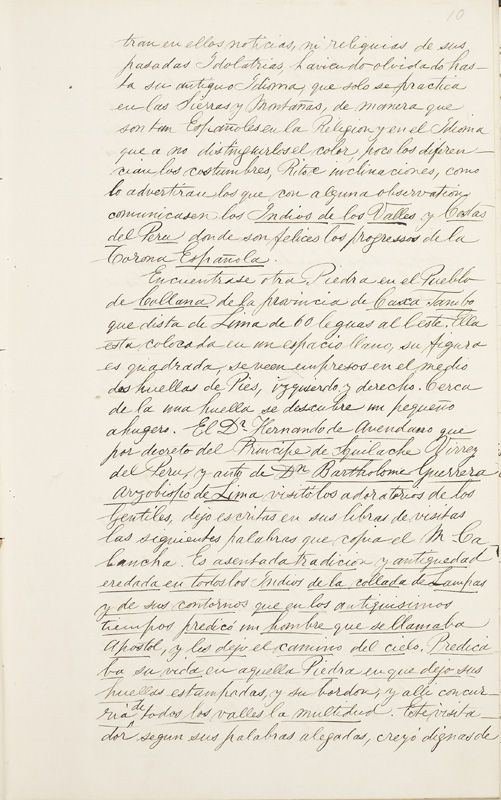 10
tran en ellos noticias, ni reliquias de sus
pasadas Idolatrias, haviendo olvidado has-
ta su antiguo Idioma, que solo se practica
en las Sierras y Montañas, de manera que
son tan Españoles en la Religion y en el Idioma
que a no distinguirles el color, poco los diferen-
cian los costumbres, Ritos inclinaciones, como
lo advertiran los que con alguna observation
comunicasen los Indios de los Valles, y Costas
del Peru donde son felices los progressos de la
Corona Española.
Encuentrase otra Piedra en el Pueblo
de Collana de la provincia de Caxa Tambo
que dista de Lima de 60 leguas al Leste. Ella
esta colocada en un espacio llano, su figura
es quadrada, se veen impresos en el medio
dos huellas de Pies, izquierdo y derecho. Cerca
de la una huella se descubre un pequeño
ahugero. El Dr. Hernando de Avendano que
por decreto del Principe de Squilache Virrey
del Peru, y auto de Dn Bartholome Guerrera
Arzobispo de Lima visitó los adoratorios de los
Gentiles, dejo escritas en sus libras de visitas
las siguientes palabras que copia el M. Ca-
lancha. Es asentada tradicion y antiguedad
eredada en todos los Indios de la collada de Lampas
y de sus contornos que en los antiquisimos
tiempos predicó un hombre que se llamaba
Apostol, y les dejo el camino del cielo. Predica-
ba su vida en aquella Piedra en que dejo sus
huellas estampadas, y su bordon, y alli concur-
ria de todos los valles la multitud. Este visita-
dor segun sus palabras alegadas, creyó dignas de